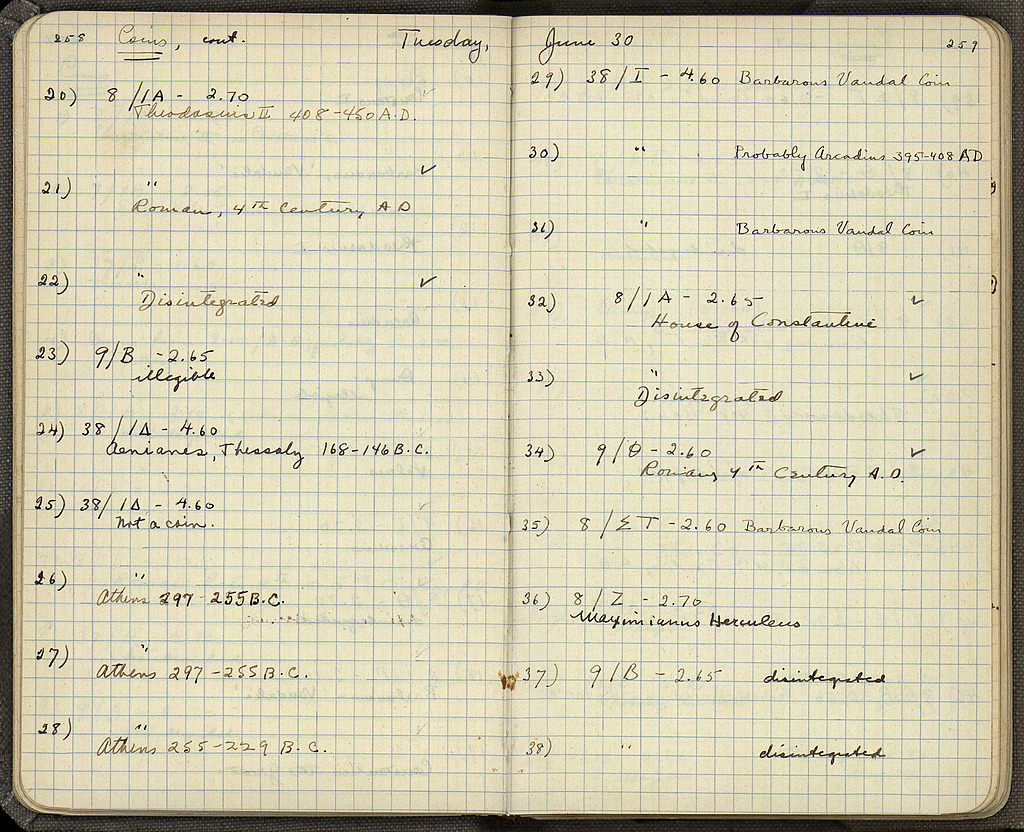 258 Coins, cont. Tuesday,
20) 8/1A - 2.70
Theodosius II 408-450 A.D.
21) "
Roman, 4th Century AD
22) "
Disintegrated
23) 9/B - 2.65
illegible
24) 38/1Δ - 4.60
Aenianes, Thessaly 168-146 B.C.
25) 38/1Δ - 4.60
Not a coin.
26) "
Athens 297-255 B.C.
27) "
Athens 297-255 B.C.
28) "
Athens 255-229 B.C.
June 30 259
29) 38/I - 4.60 Barbarous Vandal Coin
30) " Probably Arcadius 395-408 AD
31) " Barbarous Vandal Coin
32) 8/1A - 2.65
House of Constantine
33) "
Disintegrated
34) 9/Θ - 2.60
Roman, 4th Century A.D.
35) 8/ΣΤ - 2.60 Barbarous Vandal Coin
36) 8/Z - 2.70
Maximianus Herculeus
37) 9/B - 2.65 disintegrated
38) " disintegrated